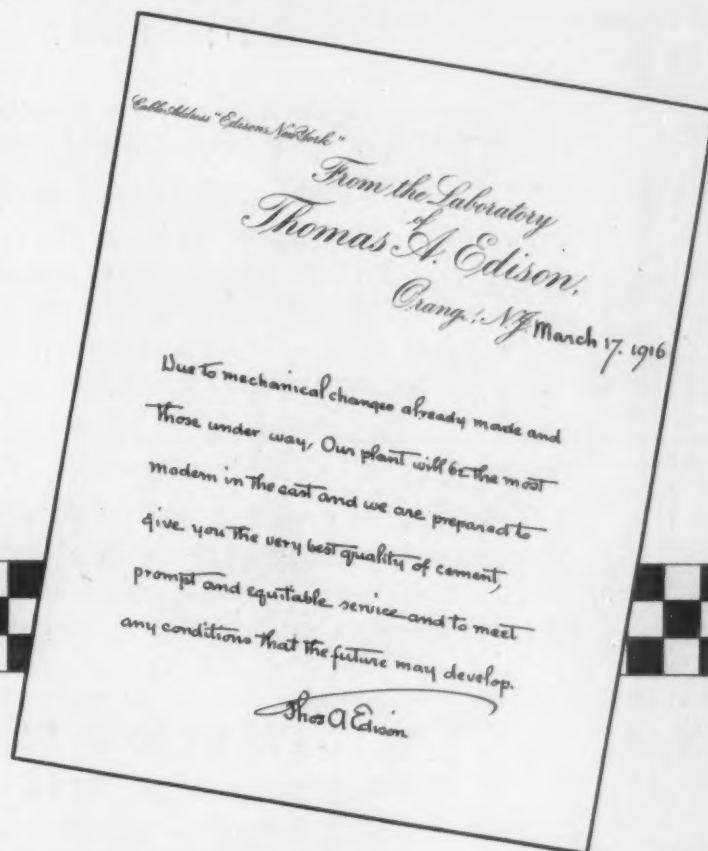 Cable Address "Edison, New York"
From the Laboratory
of
Thomas A. Edison,
Orange, N.J. March 17. 1916
Due to mechanical changes already made and
those under way, Our plant will be the most
modern in the east and we are prepared to
give you the very best quality of cement,
prompt and equitable service and to meet
any conditions that the future may develop.
Thos A Edison